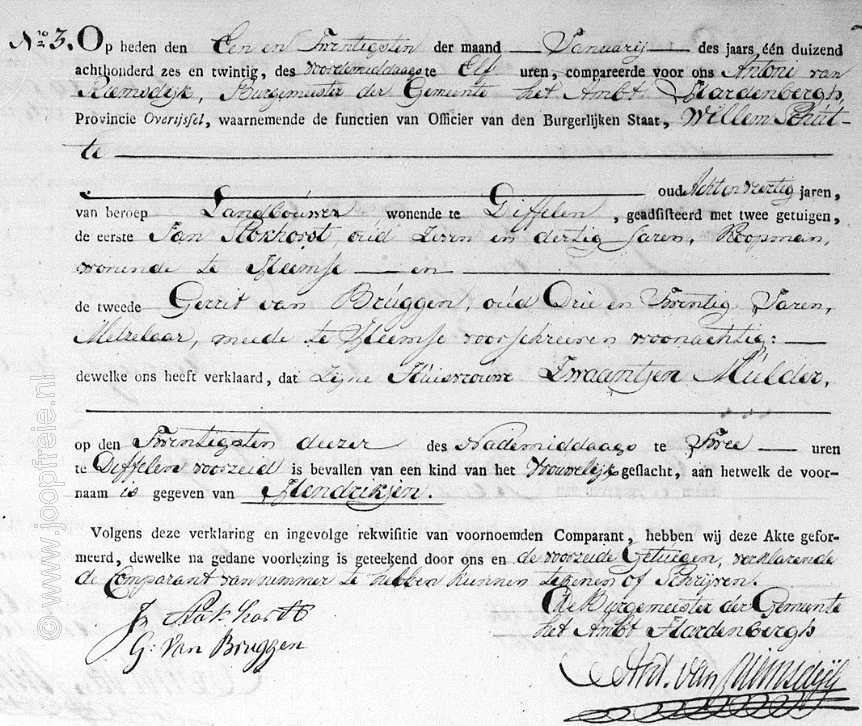 No. 3. Op heden den Een en Twentigsten der maand Januarij des jaars één duizend
achthonderd zes en twintig, des voordemiddaags te Elf uren, compareerde voor ons Antoni van
Riemsdijk, Burgemeister der Gemeente het Ambt Hardenbergh,
Provincie Overijssel, waarnemende de functien van Officier van den Burgerlijken Staat, Willem Schut-
te
oud Acht en veertig jaren,
van beroep Landbouwer wonende te Diffelen, geadsisteerd met twee getuigen,
de eerste Jan Slokhorst, oud Zeven en dertig Jaren, Koopman,
wonende te Heemse en
de tweede Gerrit van Bruggen, oud Drie en Twentig Jaren,
Metzelaar, mede te Heemse voorschreeven woonachtig:
dewelke ons heeft verklaard, dat Zijne Huisvrouwe Zwaantjen Mulder,
op den Twentigsten deezer des Nademiddaags te Twee uren
te Diffelen voorzeid is bevallen van een kind van het Vrouwelijk geslacht, aan hetwelk de voor-
naam is gegeven van Hendrikjen.
Volgens deze verklaring en ingevolge rekwisitie van voornoemden Comparant, hebben wij deze Akte gefor-
meerd, dewelke na gedane voorlezing is geteekend door ons en de voorzeide Getuigen, verklarende
de Comparant van nimmer te hebben kunnen tekenen of Schrijven.
De Burgemeister der Gemeente
het Ambt Hardenbergh
G: Van Bruggen
Ant. van Riemsdijk
© www.joopfreie.nl